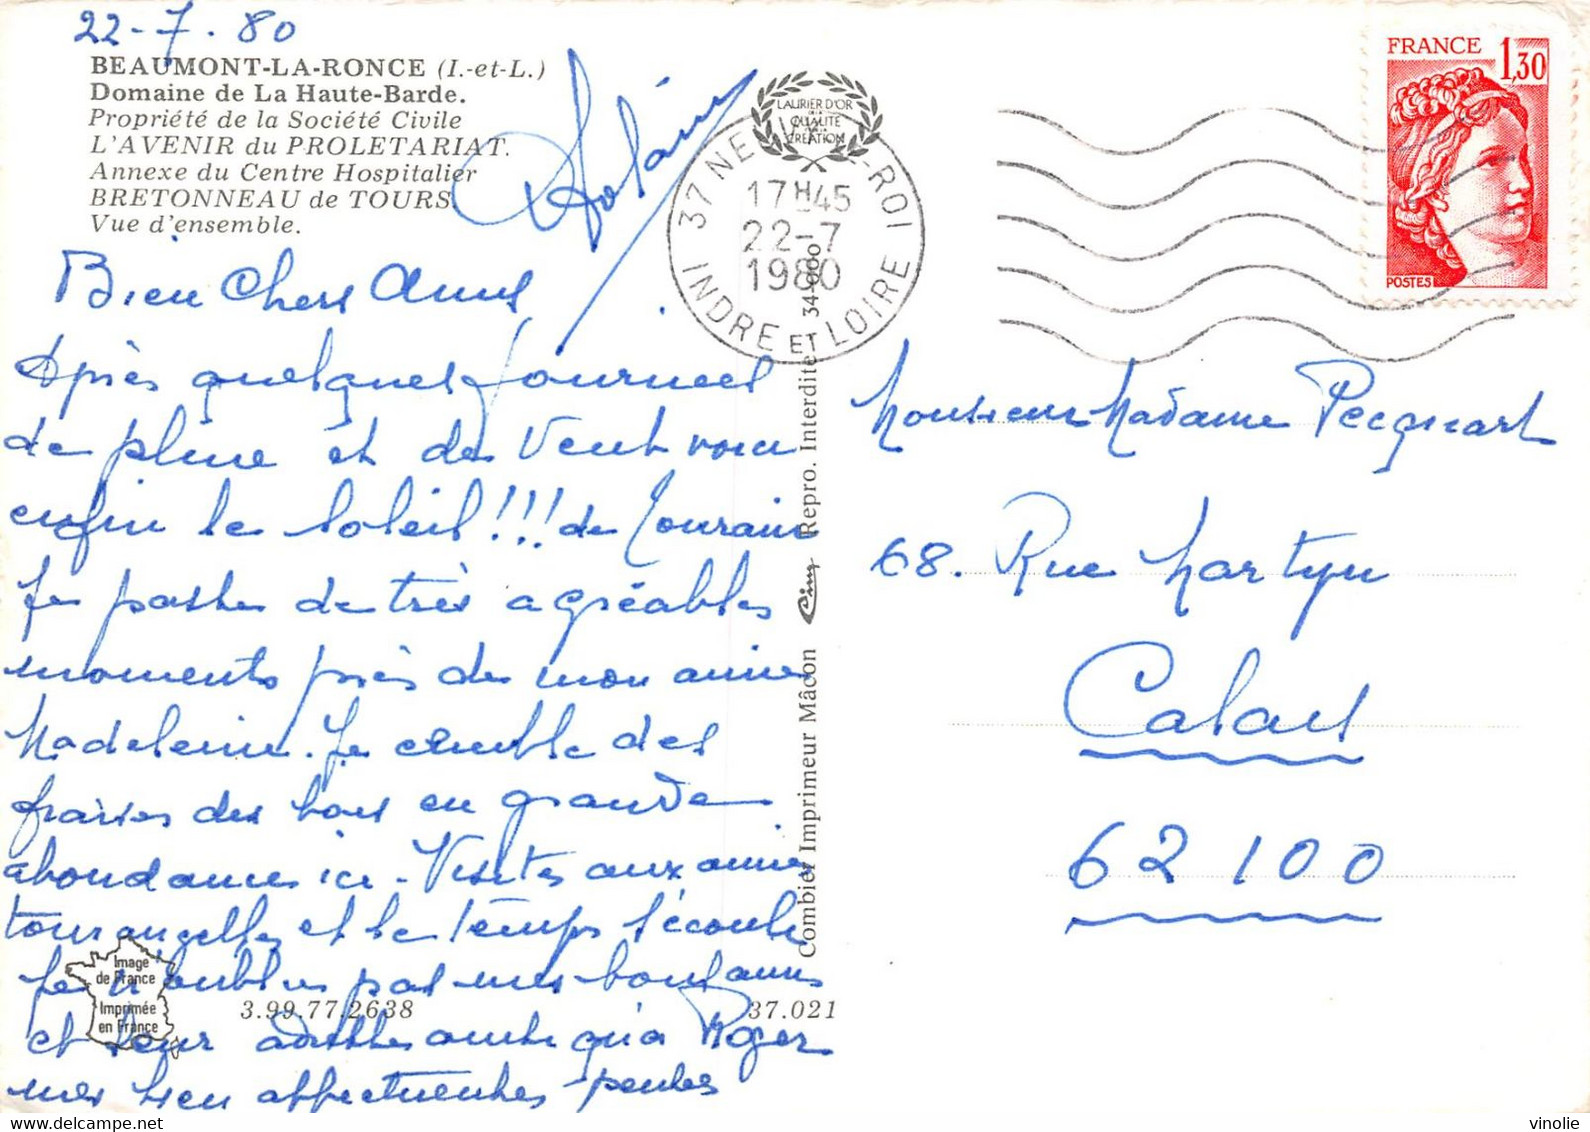 22-7.80
BEAUMONT-LA-RONCE (I.-et-L.)
Domaine de La Haute-Barde.
Propriété de la Société Civile
L'AVENIR du PROLETARIAT.
Annexe du Centre Hospitalier
BRETONNEAU de TOURS.
Vue d'ensemble.
LAURIER D'OR
QUALITE
CREATION
37 NE -ROI
17H45
22-7
1980
INDRE ET LOIRE
FRANCE 1,30
POSTES
Bien Chers Amis
Après quelques journées
de pluie et de Vent voici
enfin le soleil!!! de Touraine
Je passe de très agréables
moments près de mon amie
Madeleine. Je cueille des
fraises des bois en grande
abondance ici - Visites aux amis
tourangelles et le temps s'écoule
Je n'oublie pas mes bons amis
et leur adresse ainsi qu'à Roger
mes bien affectueuses pensées
Monsieur Madame Pecquart
68. Rue Martyn
Calais
62100
Image
de France
Imprimée
en France
3.99.77.2638
37.021
Combier Imprimeur Mâcon Cim Repro. Interdite 34.000
vinolie